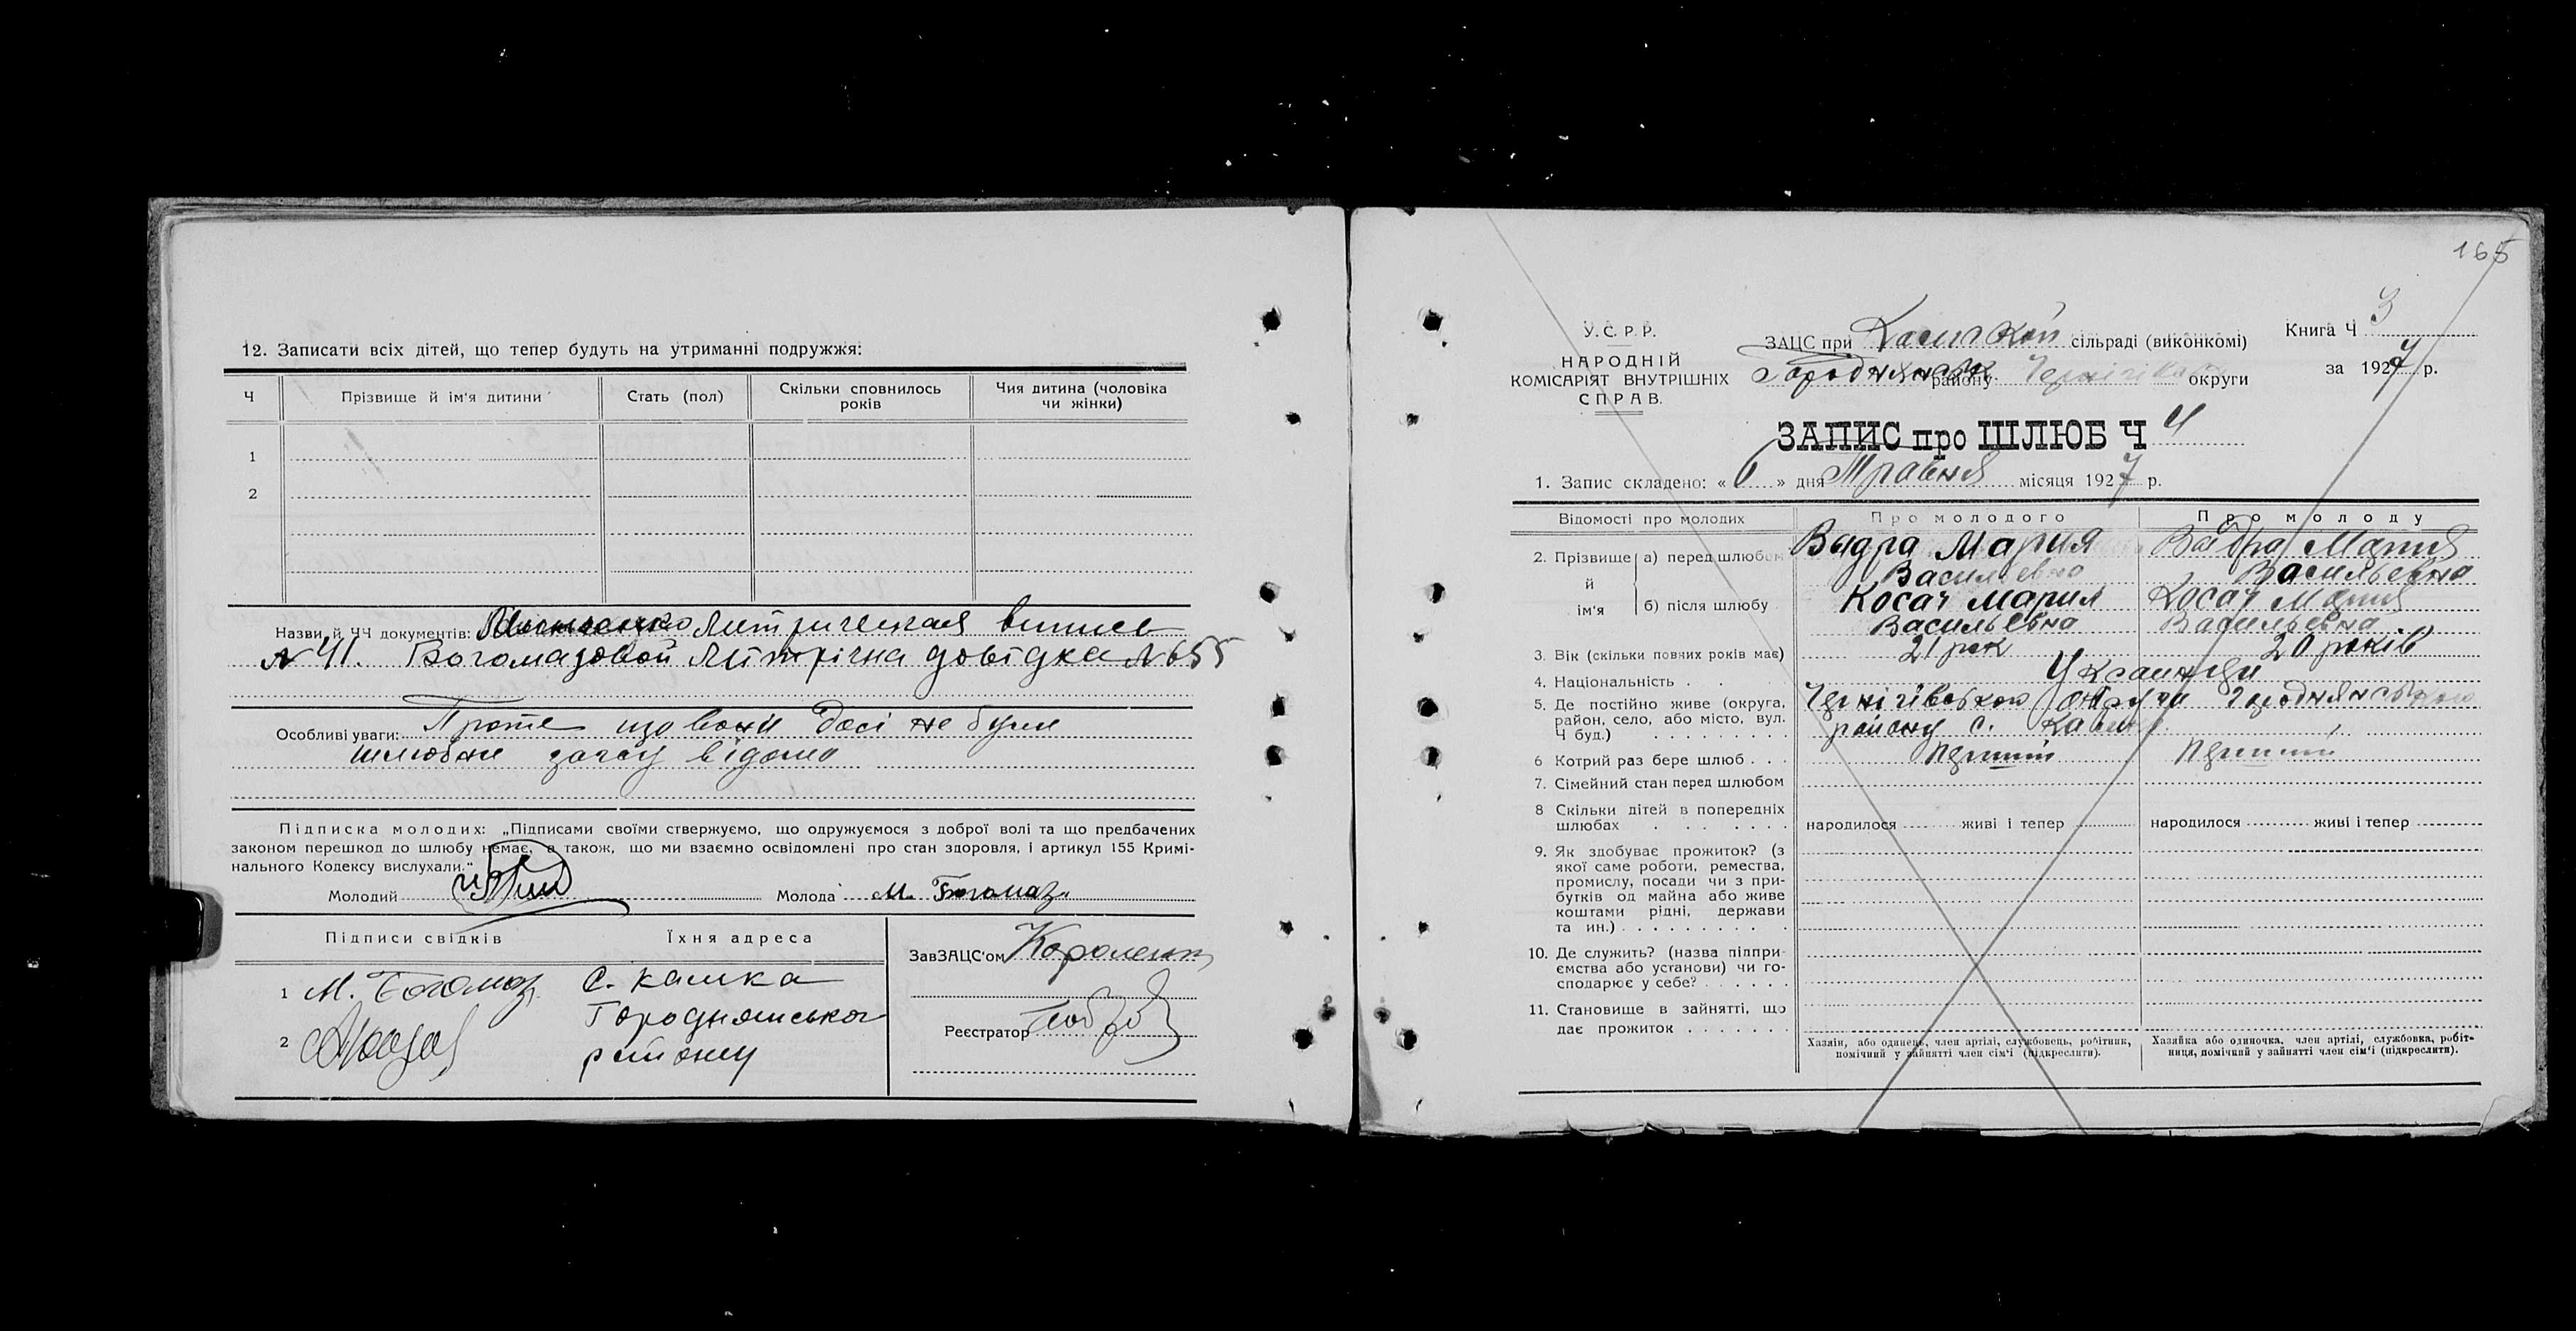 12. Записати всіх дітей, що тепер будуть на утриманні подружжя:
Ч Прізвище й ім'я дитини Стать (пол) Скільки сповнилось років Чия дитина (чоловіка чи жінки)
1
2
Назви й ЧЧ документів: метрическая выпись
N 41. Богомазовой Метрична довідка N 655
Особливі уваги: Проте що вони досі не були
шлюбні зачсу відомо
Підписка молодих: „Підписами своїми стверджуємо, що одружуємося з доброї волі та що предбачених
законом перешкод до шлюбу немає, а також, що ми взаємно освідомлені про стан здоровля, і артикул 155 Кримі-
нального Кодексу вислухали."
Молодий Молода М. Богомаз
Підписи свідків Їхня адреса
1 М. Богомаз С. Кашка
2 Городнянського
району
ЗавЗАЦС'ом
Реєстратор
165
У.С.Р.Р.
НАРОДНІЙ
КОМІСАРІЯТ ВНУТРІШНІХ
СПРАВ.
ЗАЦС при сільраді (виконкомі)
Городнянськ району Чернігівської округи
Книга Ч 3
за 1927 р.
ЗАПИС про ШЛЮБ Ч 4
1. Запис складено: « 6 » дня Травня місяця 1927 р.
Відомості про молодих Про молодого Про молоду
2. Прізвище й ім'я а) перед шлюбом Выдра Мария Выдра Мария
Васильевна Васильевна
б) після шлюбу Косач Мария Косач Мария
Васильевна Васильевна
3. Вік (скільки повних років має) 21 рок 20 років
4. Національність . Украинци
5. Де постійно живе (округа, район, село, або місто, вул. Ч буд.) Чернігівської округи Городнянського
району с.
6 Котрий раз бере шлюб . . . перший перший
7. Сімейний стан перед шлюбом
8 Скільки дітей в попередніх
шлюбах народилося живі і тепер народилося живі і тепер
9. Як здобуває прожиток? (з
якої саме роботи, ремества,
промислу, посади чи з при-
бутків од майна або живе
коштами рідні, держави
та ин.)
10. Де служить? (назва підпри-
ємства або установи) чи го-
сподарює у себе?
11. Становище в зайнятті, що
дає прожиток
Хазяїн, або одинець, член артілі, службовець, робітник,
помічний у зайнятті член сім'ї (підкреслити).
Хазяйка або одиночка, член артілі, службовка, робіт-
ниця, помічний у зайнятті член сім'ї (підкреслити).